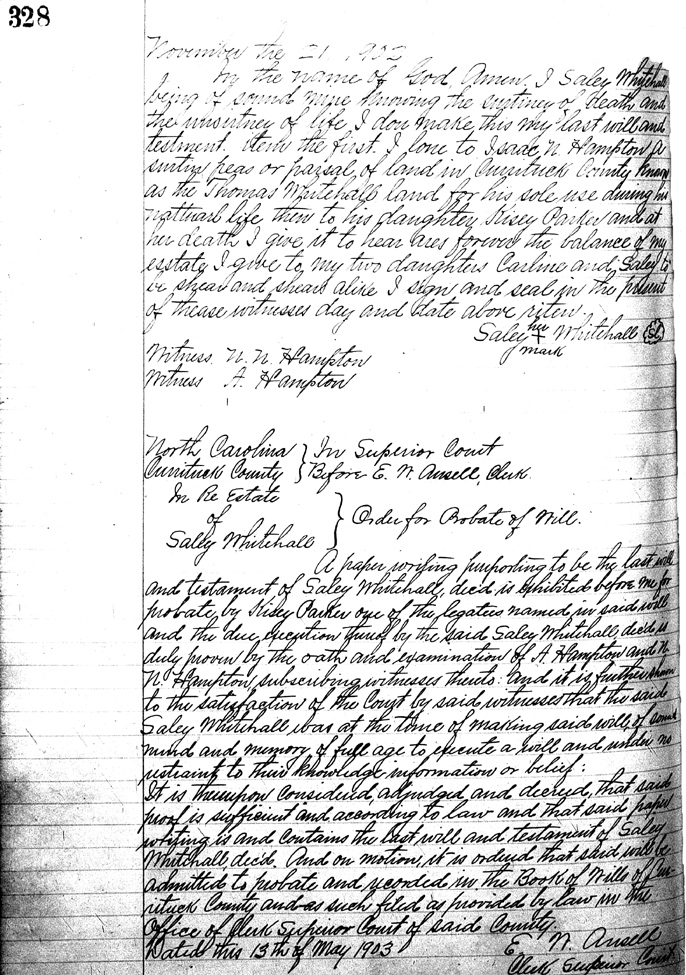 328
November the 21, 1902
In the name of God, Amen, I Saley Whitehall
being of sound mine knowing the surtiney of death, and
the unsurtney of life I don make this my last will and
testment. Item the first. I lone to Isaac N. Hampton A
surtin peas or parsal of land in Currituck County known
as the Thomas Whitehall land for his sole use during his
natturl life then to his daughter Kisey Parker and at
her death I give it to hear ares forever the balance of my
esstate, I give to my two daughters Carline and Saley to
be shear and shear alike I sign and seal in the present
of thease witnesses day and date above riten.
Saley her + mark Whitehall
Witness. N. N. Hampton
Witness A. Hampton
North Carolina } In Superior Court
Currituck County } Before E. W. Ansell, Clerk.
In Re Estate
of } Order for Probate of Will.
Saley Whitehall
A paper writing purporting to be the last will
and testament of Saley Whitehall, dec'd is exhibited before me for
probate, by Kisey Parker one of the legatees named in said will
and the due execution thereof by the said Saley Whitehall, dec'd is
duly proven by the oath and examination of A. Hampton and N.
N. Hampton, subscribing witnesses thereto: and it is further shown
to the satisfaction of the Court by said witnesses that the said
Saley Whitehall was at the time of making said will, of sound
mind and memory, of full age to execute a will and under no
restraint, to their knowledge, information or belief:
It is thereupon considered, adjudged and decreed, that said
proof is sufficient and according to law and that said paper
writing is and contains the last will and testament of Saley
Whitehall dec'd. And on motion, it is ordered that said will be
admitted to probate and recorded in the Book of Wills of Cur-
rituck County and as such filed as provided by law in the
Office of Clerk Superior Court of said County.
Dated this 13th of May 1903 E. W. Ansell
Clerk Superior Court